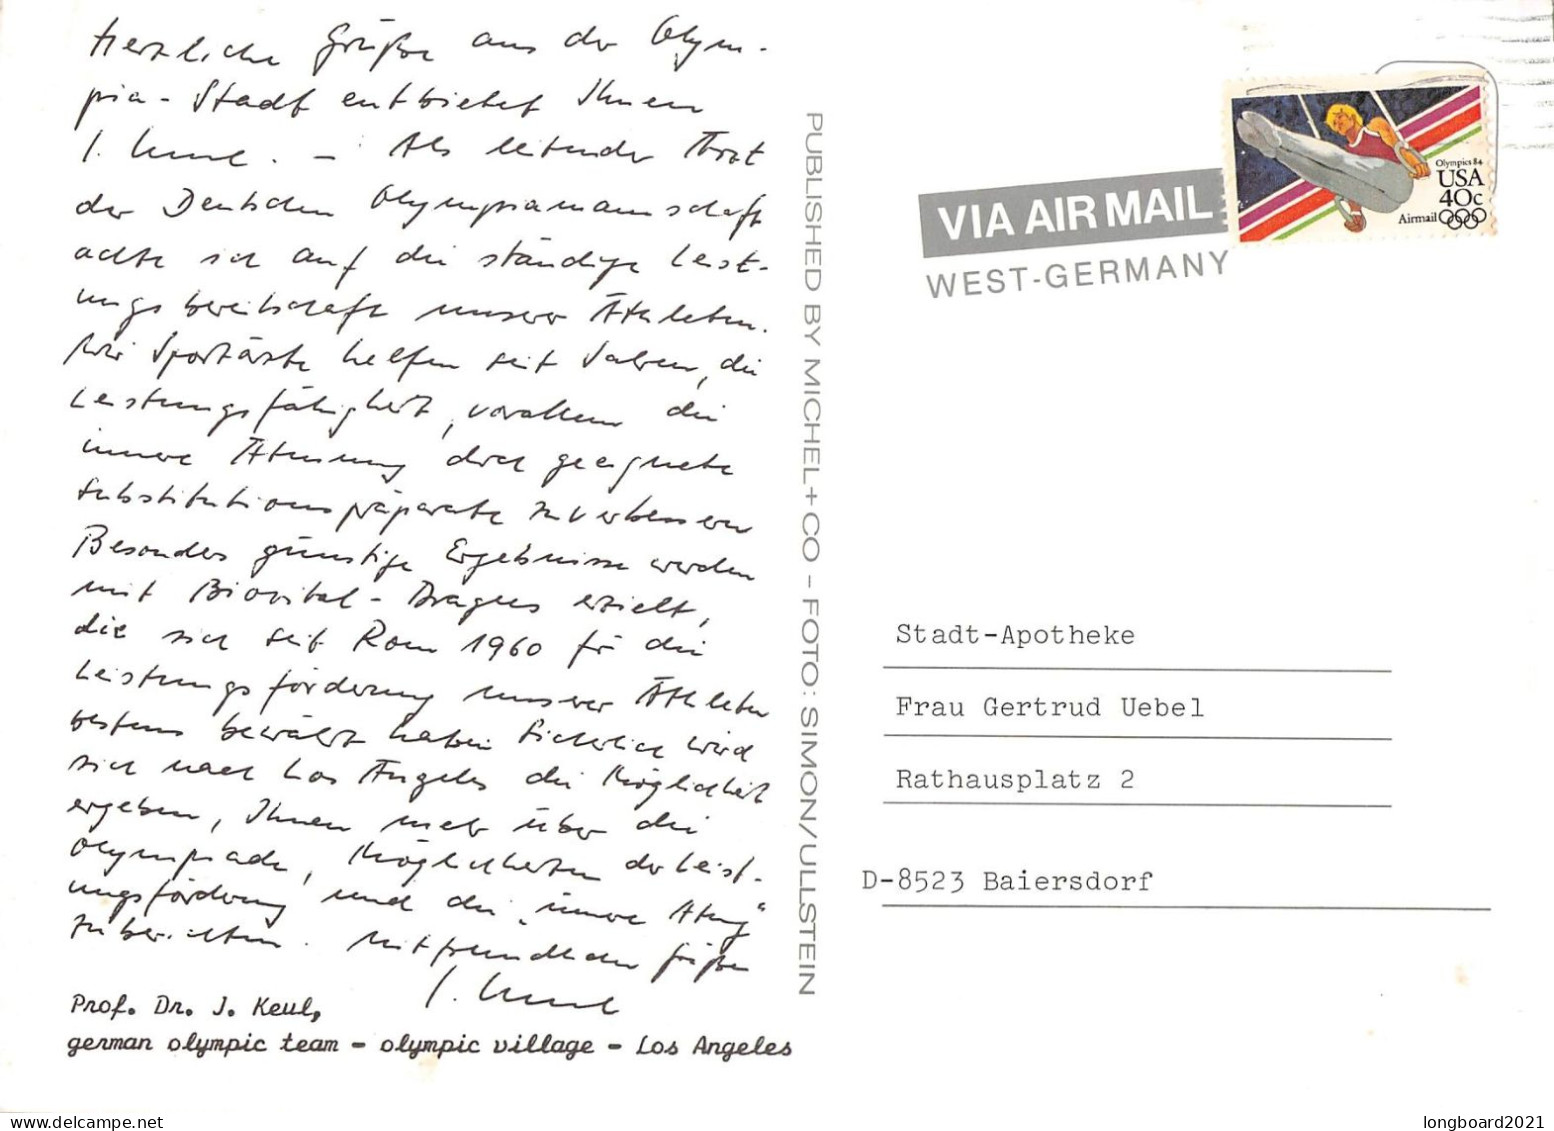 Herzliche Grüße aus der Olym-
pia-Stadt entbietet Ihnen
J. Keul. - Als leitender Arzt
der Deutschen Olympiamannschaft
achte ich auf die ständige Leist-
ungsbereitschaft unserer Athleten.
Wir Sportärzte helfen seit Jahren, die
Leistungsfähigkeit, vorallem die
innere Atmung durch geeignete
Substitutionspräparate zu verbessern
Besonders günstige Ergebnisse werden
mit Biovital-Dragees erzielt,
die sich seit Rom 1960 für die
Leistungsförderung unserer Athleten
bestens bewährt haben Sicherlich wird
sich nach Los Angeles die Möglichkeit
ergeben, Ihnen mehr über die
Olympiade, Möglichkeiten der Leist-
ungsförderung und die „innere Atmung“
zu berichten. Mit freundlichen Grüßen
J. Keul
Prof. Dr. J. Keul,
german olympic team - olympic village - Los Angeles
PUBLISHED BY MICHEL+CO - FOTO: SIMON/ULLSTEIN
VIA AIR MAIL
WEST-GERMANY
Olympics 84
USA
40c
Airmail
Stadt-Apotheke
Frau Gertrud Uebel
Rathausplatz 2
D-8523 Baiersdorf
longboard2021